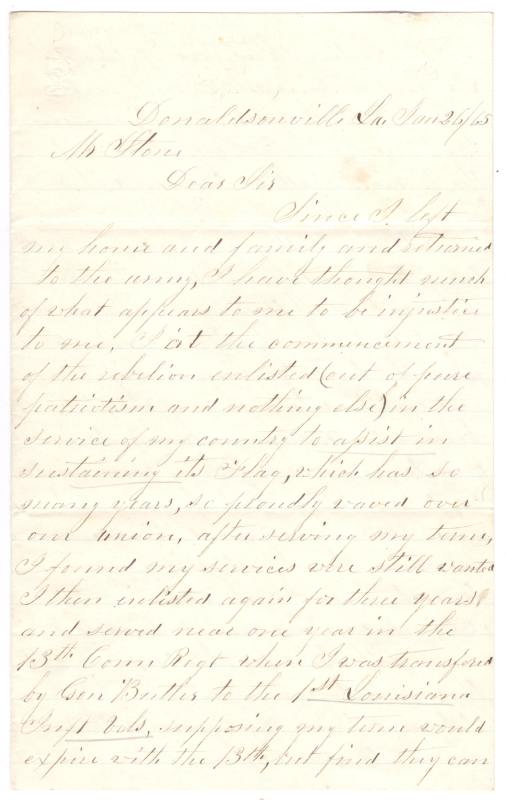 Donaldsonville La, Jan 26/65
Mr Stone
Dear Sir
Since I left
my home and family and returned
to the army, I have thought much
of what appears to me to be injustice
to me, I at the commencement
of the rebelion enlisted (out of pure
patriotism and nothing else) in the
service of my country to assist in
sustaining its Flag, which has so
many years, so proudly waved over
our union, after serving my time,
I found my services were still wanted
I then enlisted again for three years
and served near one year in the
13th Conn Regt when I was transfered
by Gen Butler to the 1st Louisiana
Inft Vols, supposing my term would
expire with the 13th, but find they can